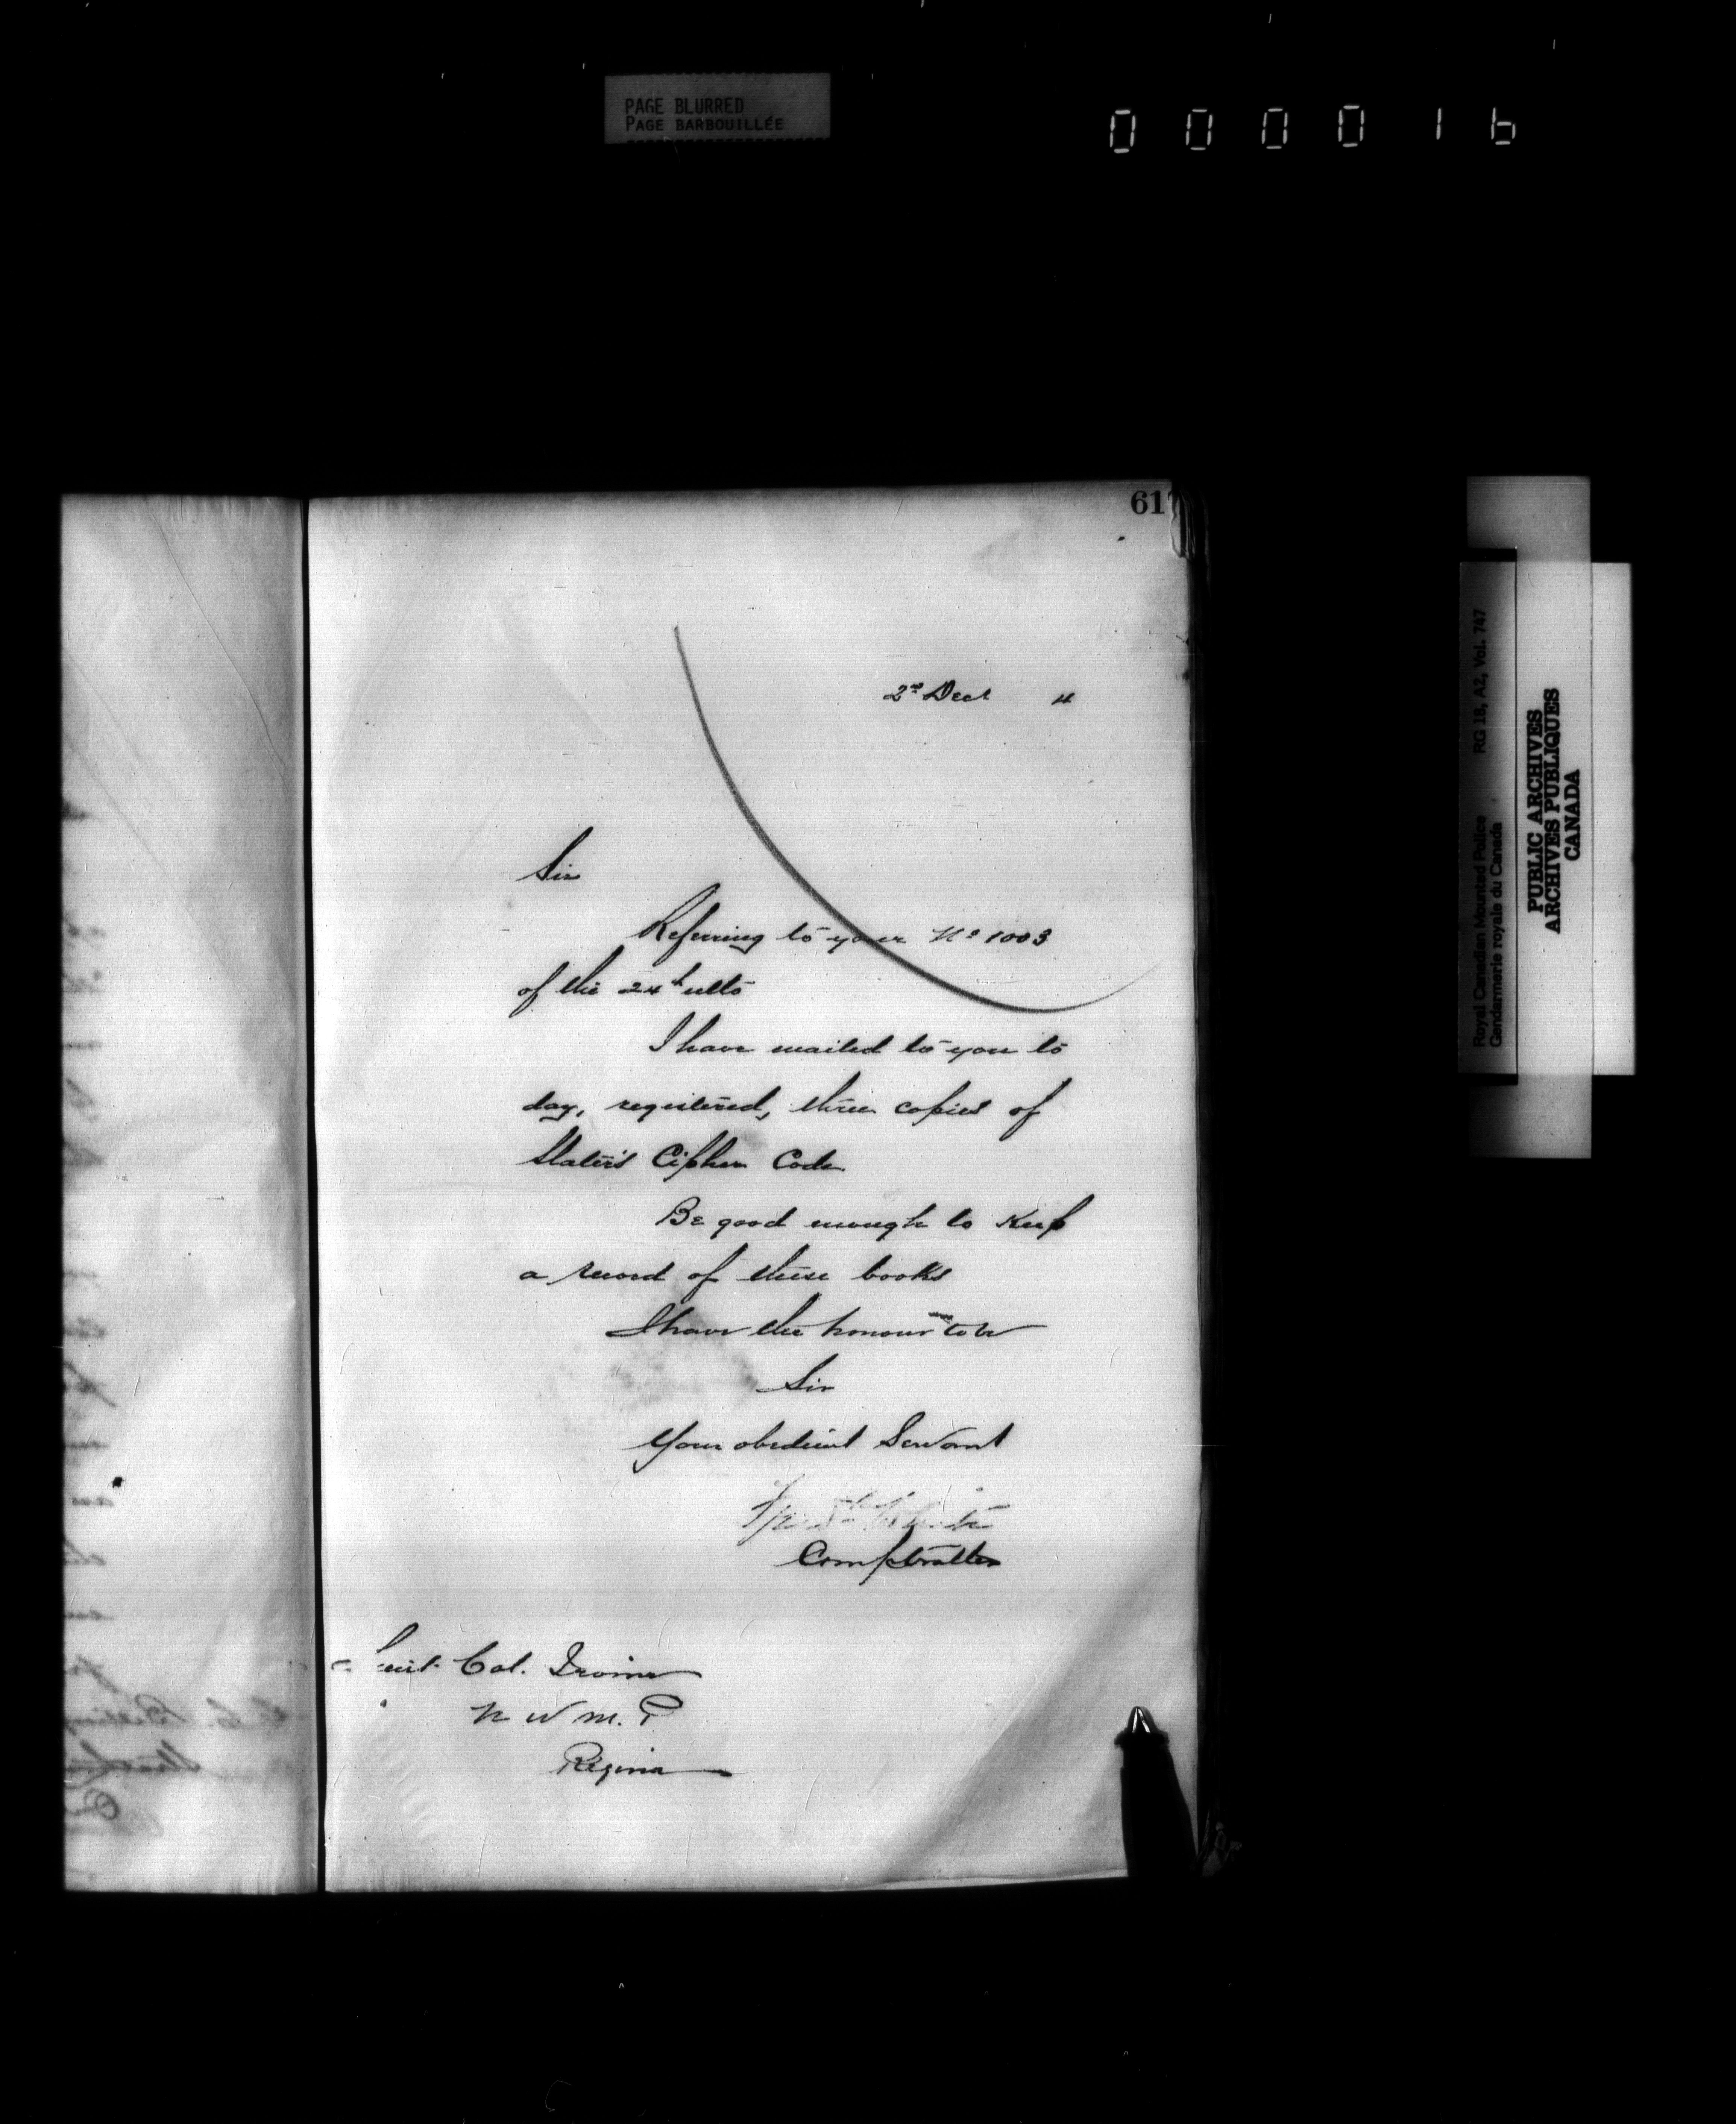 PAGE BLURRED
PAGE BARBOUILLÉE
0 0 0 0 1 6
617
2nd Decr 4
Sir
Referring to your No 1003
of the 24th ulto
I have mailed to you to
day, registered, three copies of
Slater's Cipher Code
Be good enough to Keep
a record of these books
I have the honour to be
Sir
Your obedient Servant
Fred White
Comptroller
Lieut. Col. Irvine
N W M. P
Regina
Royal Canadian Mounted Police RG 18, A2, Vol. 747
Gendarmerie royale du Canada
PUBLIC ARCHIVES
ARCHIVES PUBLIQUES
CANADA